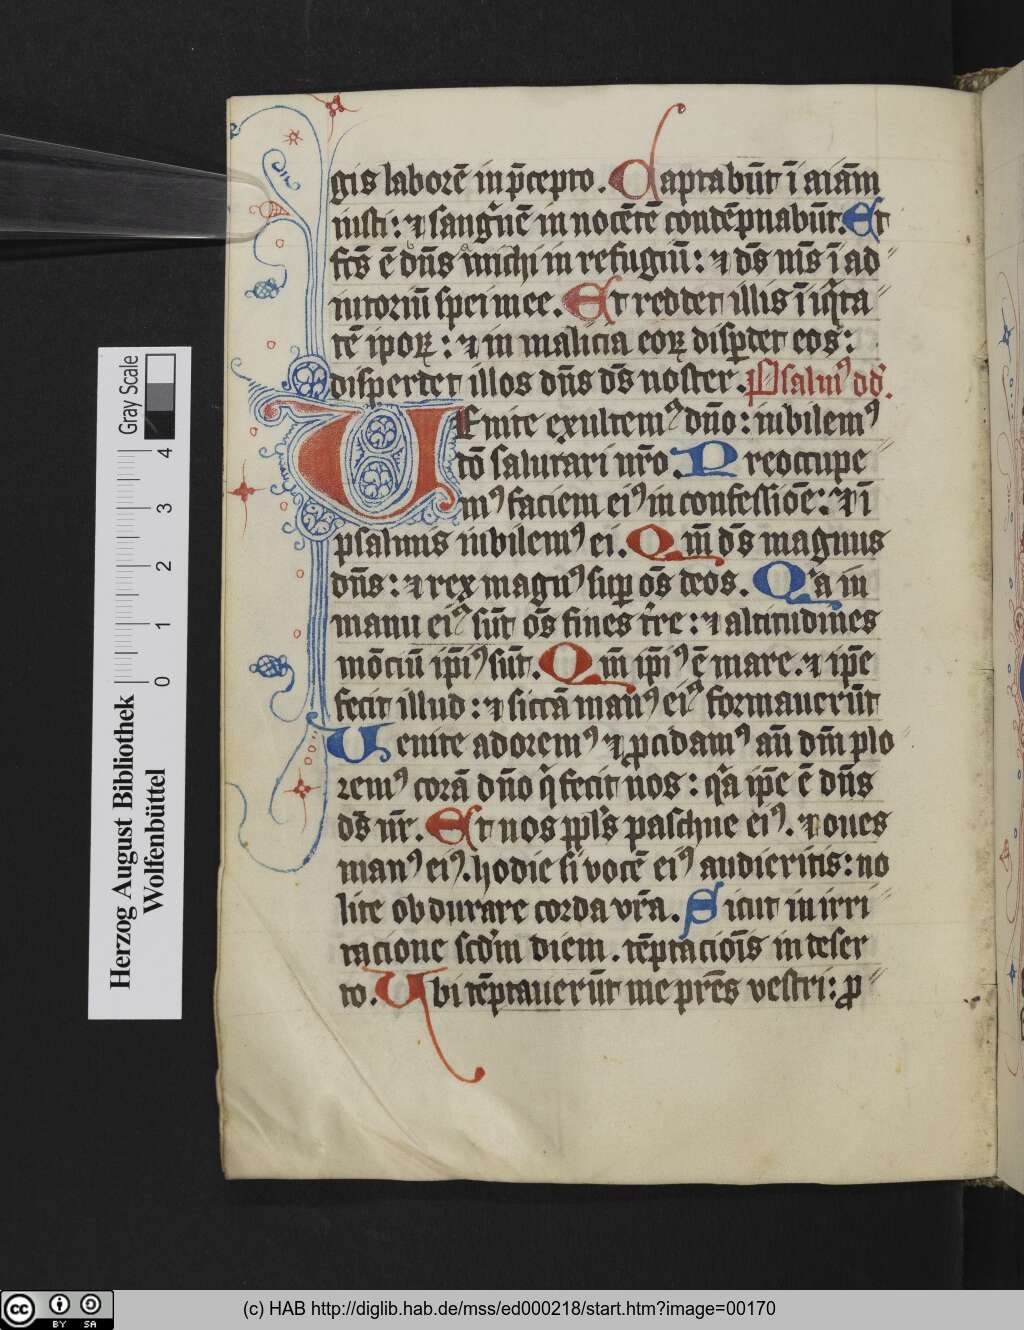 gis laborē in p̄cepto. Captabūt ī aīam
iusti: ⁊ sang̍nē in nocētē condēpnabūt. Et
fcs̄ ē dn̄s michi in refugiū: ⁊ ds̄ ms̄ ī ad
iutoriū spei mee. Et reddet illis ī iq̍ta
tē ipoꝝ: ⁊ in malicia eoꝝ disp̄det eos:
disperdet illos dn̄s ds̄ noster. Psalmꝰ dd̄.
Uenite exultemꝰ dn̄o: iubilemꝰ
dō salutari nr̄o. Preoccupe
mꝰ faciem eiꝰ in confessiōe: ⁊ ī
psalmis iubilemꝰ ei. Qm̄ ds̄ magnus
dn̄s: ⁊ rex magnꝰ suꝑ os̄ deos. Qa in
manu eiꝰ sūt os̄ fines tr̄e: ⁊ altitudines
mōciū ip̄iꝰ sūt. Qm̄ ip̄iꝰ ē mare. ⁊ ip̄e
fecit illud: ⁊ siccā manꝰ eiꝰ formauerūt
Uenite adoremꝰ ⁊ ꝓcidamꝰ an̄ dm̄ plo
remꝰ corā dn̄o q̍ fecit nos: qa ip̄e ē dn̄s
ds̄ nr̄. Et nos ppl̄s paschue eiꝰ. ⁊ oues
manꝰ eiꝰ. hodie si vocē eiꝰ audieritis: no
lite obdurare corda vr̄a. Sicut in irri
tacione scd̄m diem. tēptaciōis in deser
to. Ubi tēptauerūt me pr̄es vestri: ꝓ
Gray Scale
0 1 2 3 4
Herzog August Bibliothek
Wolfenbüttel
cc BY SA
(c) HAB http://diglib.hab.de/mss/ed000218/start.htm?image=00170